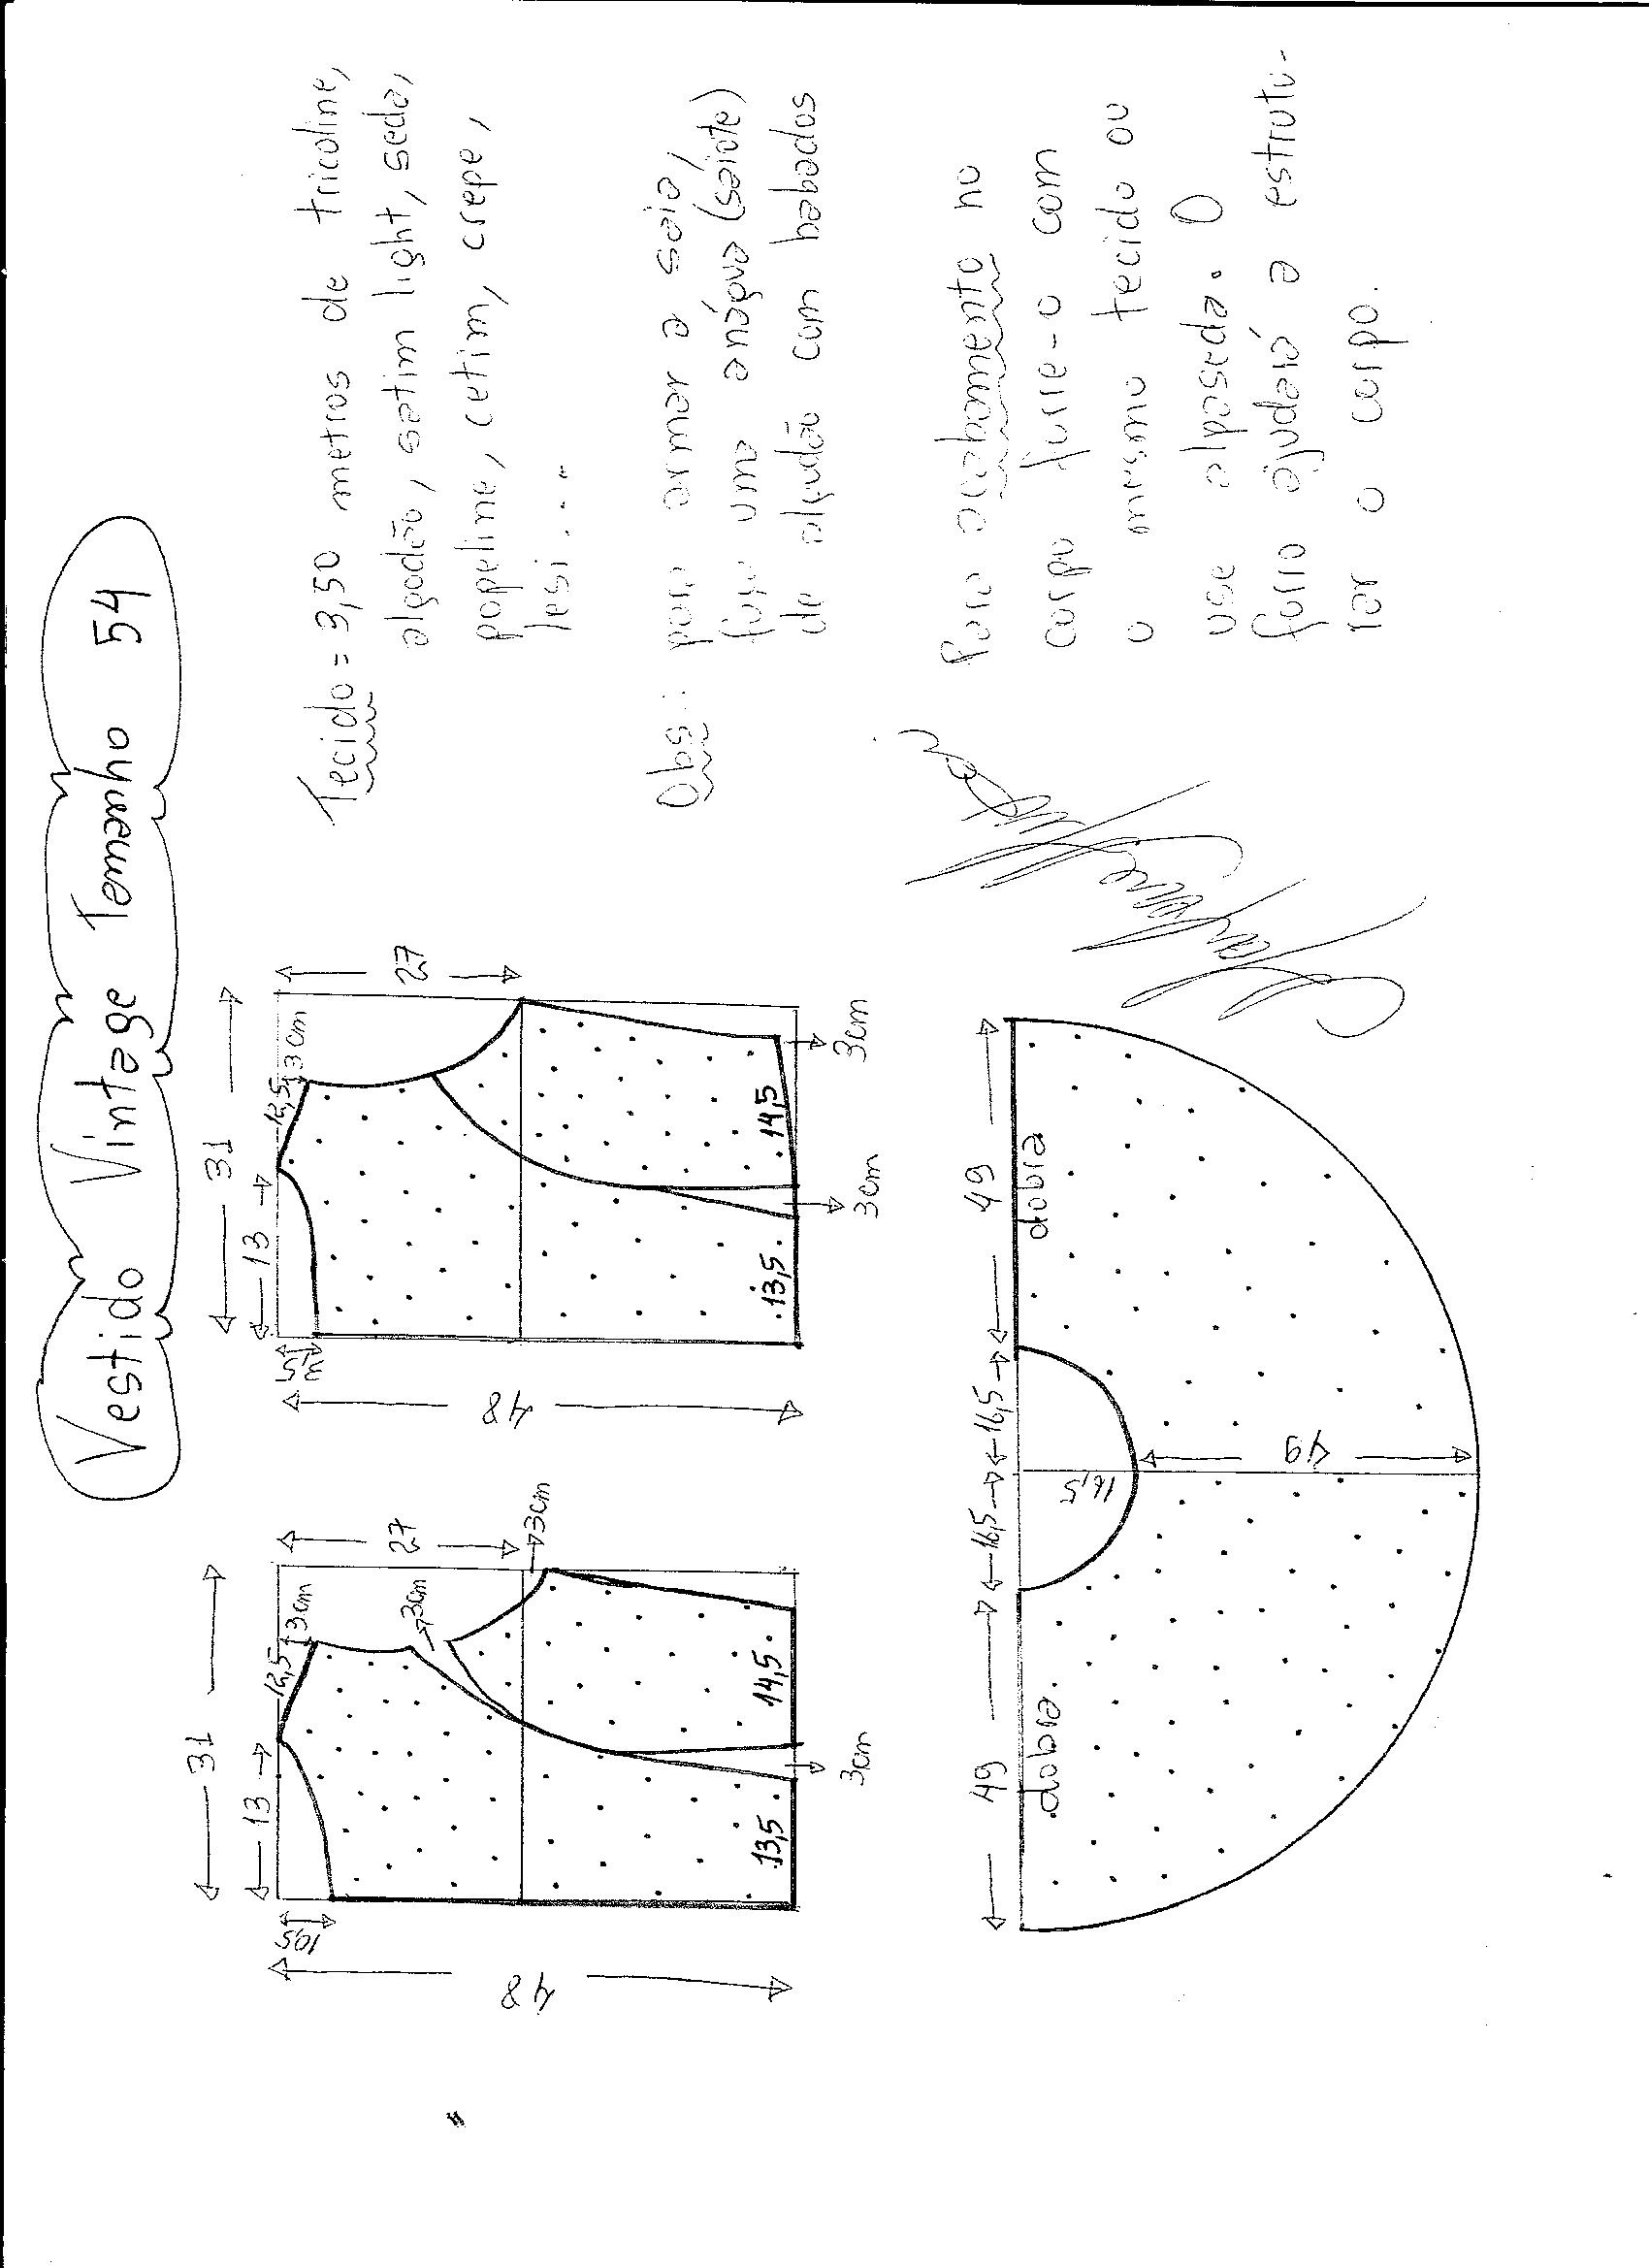 Vestido Vintage Tamanho 54
31
13
12,5
3cm
10,5
27
3cm
3cm
48
13,5
14,5
3cm
31
13
12,5
3cm
27
48
13,5
14,5
3cm
3cm
49
16,5
16,5
49
dobra
16,5
dobra
49
Tecido = 3,50 metros de tricoline,
algodão, satim light, seda,
popeline, cetim, crepe,
lesi...
Obs.: para armar a saia,
faça uma anágua (saiote)
de algodão com babados
Para acabamento no
corpo forre-o com
o mesmo tecido ou
use alpaseda. O
forro ajudará a estrutu-
rar o corpo.
Marlene Mukai